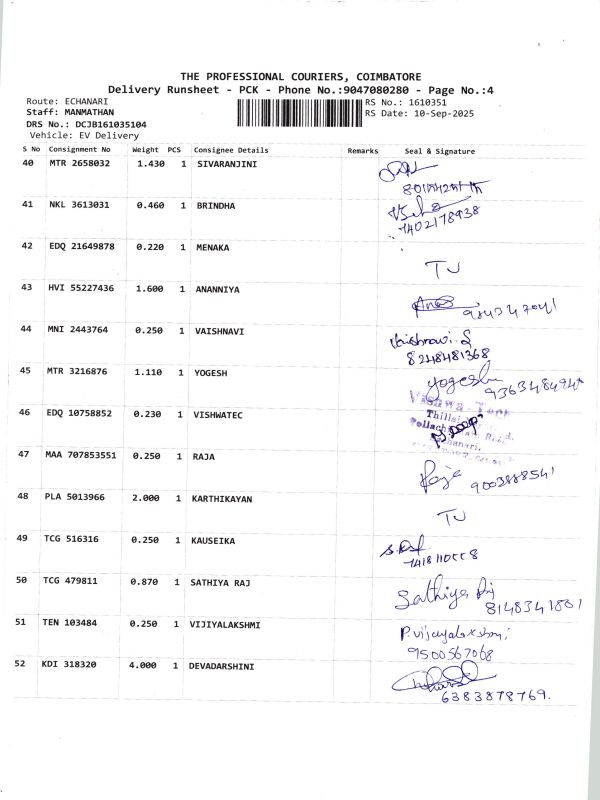 THE PROFESSIONAL COURIERS, COIMBATORE
Delivery Runsheet - PCK - Phone No.:9047080280 - Page No.:4
Route: ECHANARI
RS No.: 1610351
Staff: MANMATHAN
RS Date: 10-Sep-2025
DRS No.: DCJB161035104
Vehicle: EV Delivery
S No Consignment No Weight PCS Consignee Details Remarks Seal & Signature
40 MTR 2658032 1.430 1 SIVARANJINI
41 NKL 3613031 0.460 1 BRINDHA
7402178938
42 EDQ 21649878 0.220 1 MENAKA
TU
43 HVI 55227436 1.600 1 ANANNIYA
44 MNI 2443764 0.250 1 VAISHNAVI
Vaishnavi.S
8248481368
45 MTR 3216876 1.110 1 YOGESH
Yogesh
46 EDQ 10758852 0.230 1 VISHWATEC
47 MAA 707853551 0.250 1 RAJA
Raja 9003888541
48 PLA 5013966 2.000 1 KARTHIKAYAN
TU
49 TCG 516316 0.250 1 KAUSEIKA
50 TCG 479811 0.870 1 SATHIYA RAJ
Sathiya Raj
8148341801
51 TEN 103484 0.250 1 VIJIYALAKSHMI
P.vijayalakshmi
9500567068
52 KDI 318320 4.000 1 DEVADARSHINI
6383878769.